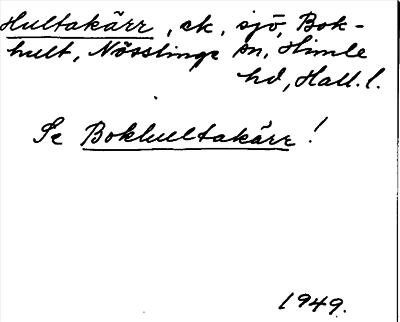 Hultakärr, ck, sjö, Bok-
hult, Nösslinge sn, Himle
hd, Hall. l.
Se Bokhultakärr!
1949.